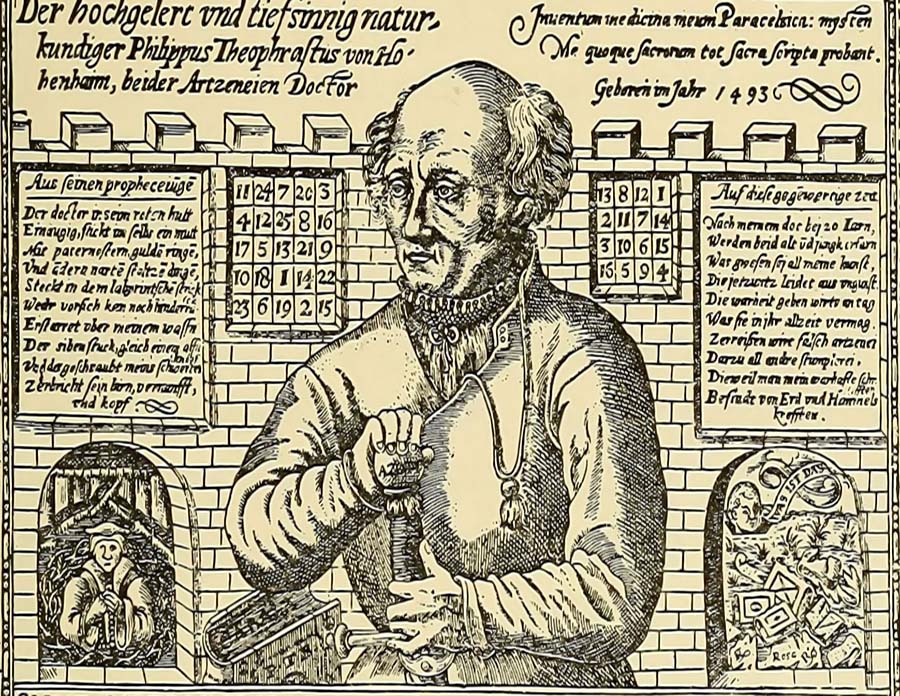 Der hochgelert vnd tiefsinnig natur,
kundiger Philippus Theophrastus von Ho-
henhaim, beider Artzeneien Doctor
Inuentum medicinæ meum Paracelsica: mysten
Me quoque sacrorum tot sacra scripta probant.
Geboren im Jahr 1493
Aus seinen propheceiungē
Der doctor in seim roten hutt
Ernaugig, sückt im selbs ein mut
Mit paternostern, guldē ringē,
Vnd ādern nartē
Steckt in dem labyrintische
Weder vorsich kan noch hindersi
Erstarret vber meinem
Der siben stuck, gleich
Vnd das geschraubt meins
Zerbricht sein hirn, vernunfft,
vnd kopf
11 24 7 20 3
4 12 25 8 16
17 5 13 21 9
10 18 1 14 22
23 6 19 2 15
13 8 12 1
2 11 7 14
3 10 6 15
16 5 9 4
Auf diese gegēwertige
Nach meinem dot bei 20 Iarn,
Werden beid alt vnd jungk erfarn
Was gwesen sei all meine kunst,
Die jetzunt leidet aus vngunst.
Die warheit geben wirts an tag
Was sie in ihr allzeit vermag.
Zerreissen wirt falsch artzenei
Darzu all andre stumplerei,
Dieweil man mein warhafte schr
ifften
Befindt von Erd vnd Himmels
krefften.
AZOTH
WAS IST DAS
Rosc